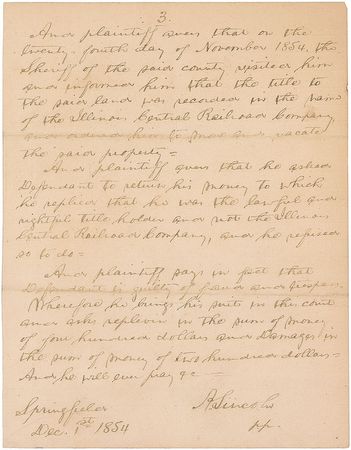 3.
And plaintiff avers that on the
twenty-fourth day of November 1854, the
Sheriff of the said county visited him
and informed him that the title to
the said land was recorded in the name
of the Illinois Central Railroad Company
and ordered him to move and vacate
the said property =
And plaintiff avers that he asked
Defendant to return his money to which
he replied that he was the lawful and
rightful title holder and not the Illinois
Central Railroad Company, and he refused
so to do =
And plaintiff says in fact that
Defendant is guilty of fraud and trespass.
Wherefore he brings his suit in the court
and asks replevin in the sum of money
of four hundred dollars and Damages in
the sum of money of two hundred dollars =
And he will ever pray &c —
Springfield A Lincoln
Dec. 1st 1854 p.p.